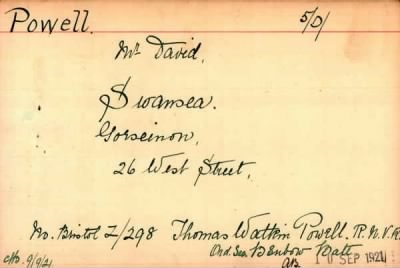 Powell. 5/D/
Mr David,
Swansea.
Gorseinon,
26 West Street,
No. Bristol Z/298 Thomas Watkin Powell. R.N.V.R
Ord. Sea. Benbow Batt
9/9/21 10 SEP 1921